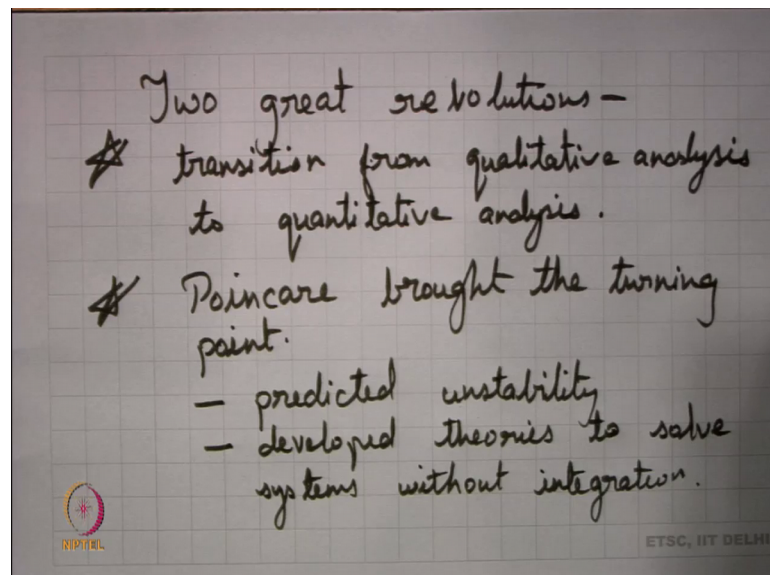 Two great revolutions –
* transition from qualitative analysis
to quantitative analysis.
* Poincare brought the turning
point.
– predicted unstability
– developed theories to solve
systems without integration.
NPTEL
ETSC, IIT DELHI